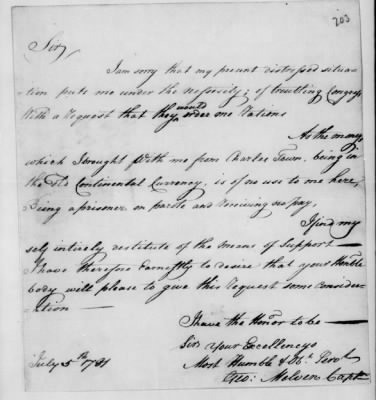 203
Sir,
I am sorry that my present distressed situa-
tion puts me under the nessosity; of troubling Congress
With a Request that they would order me Rations
As the money
which I brought with me from Charles Town, being in
the Old Continental Currency, is of no use to me here,
Being a prisoner on parole and receiving no pay,
I find my
self intirely destitute of the means of Support—
I have therefore Earnestly to desire that your Honble
body will please to give this Request some consider-
ation—
I have the Honor to be—
Sir Your Excellencys
Most Humble & Obt Servt
July 5th 1781
Geo: Melven Capt